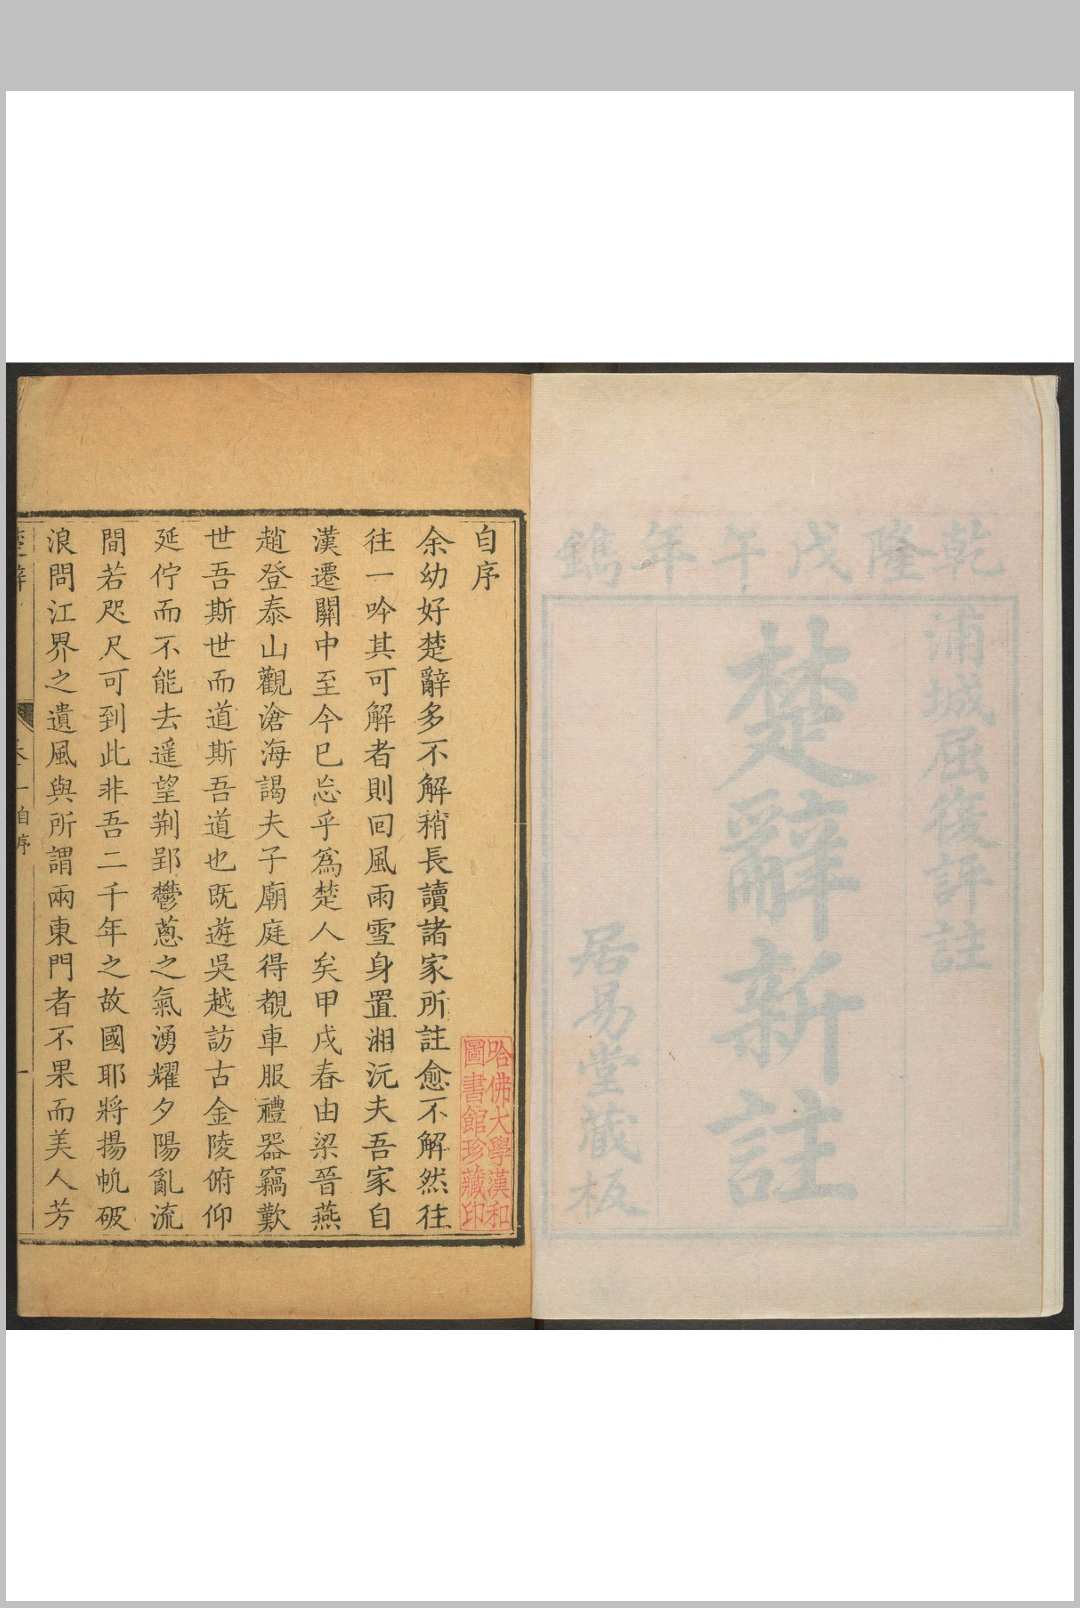 乾隆戊午年鐫
蒲城屈復評註
楚辭新註
居易堂藏板
自序
余幼好楚辭多不解稍長讀諸家所註愈不解然往
往一吟其可解者則回風雨雪身置湘沅夫吾家自
漢遷關中至今已忘乎為楚人矣甲戌春由梁晉燕
趙登泰山觀滄海謁夫子廟庭得覩車服禮器竊歎
世吾斯世而道斯吾道也既遊吳越訪古金陵俯仰
延佇而不能去遥望荆郢鬱蔥之氣湧耀夕陽亂流
間若咫尺可到此非吾二千年之故國耶將揚帆破
浪問江界之遺風與所謂兩東門者不果而美人芳
楚辭
卷一自序
一
哈佛大學漢和
圖書館珍藏印